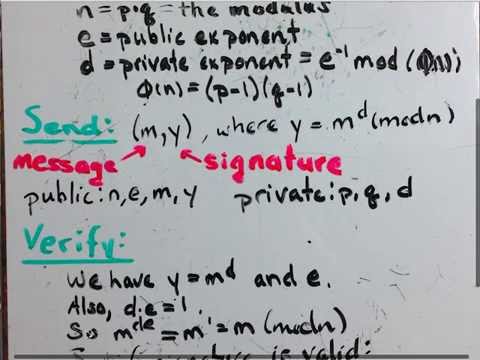 n = p·q = the modulus
e = public exponent
d = private exponent = e⁻¹ mod (ϕ(n))
ϕ(n) = (p-1)(q-1)
Send: (m,y), where y = m^d (mod n)
message signature
public: n, e, m, y private: p, q, d
Verify:
We have y = m^d and e.
Also, d·e = 1.
So m^de = m¹ = m (mod n)
is valid: